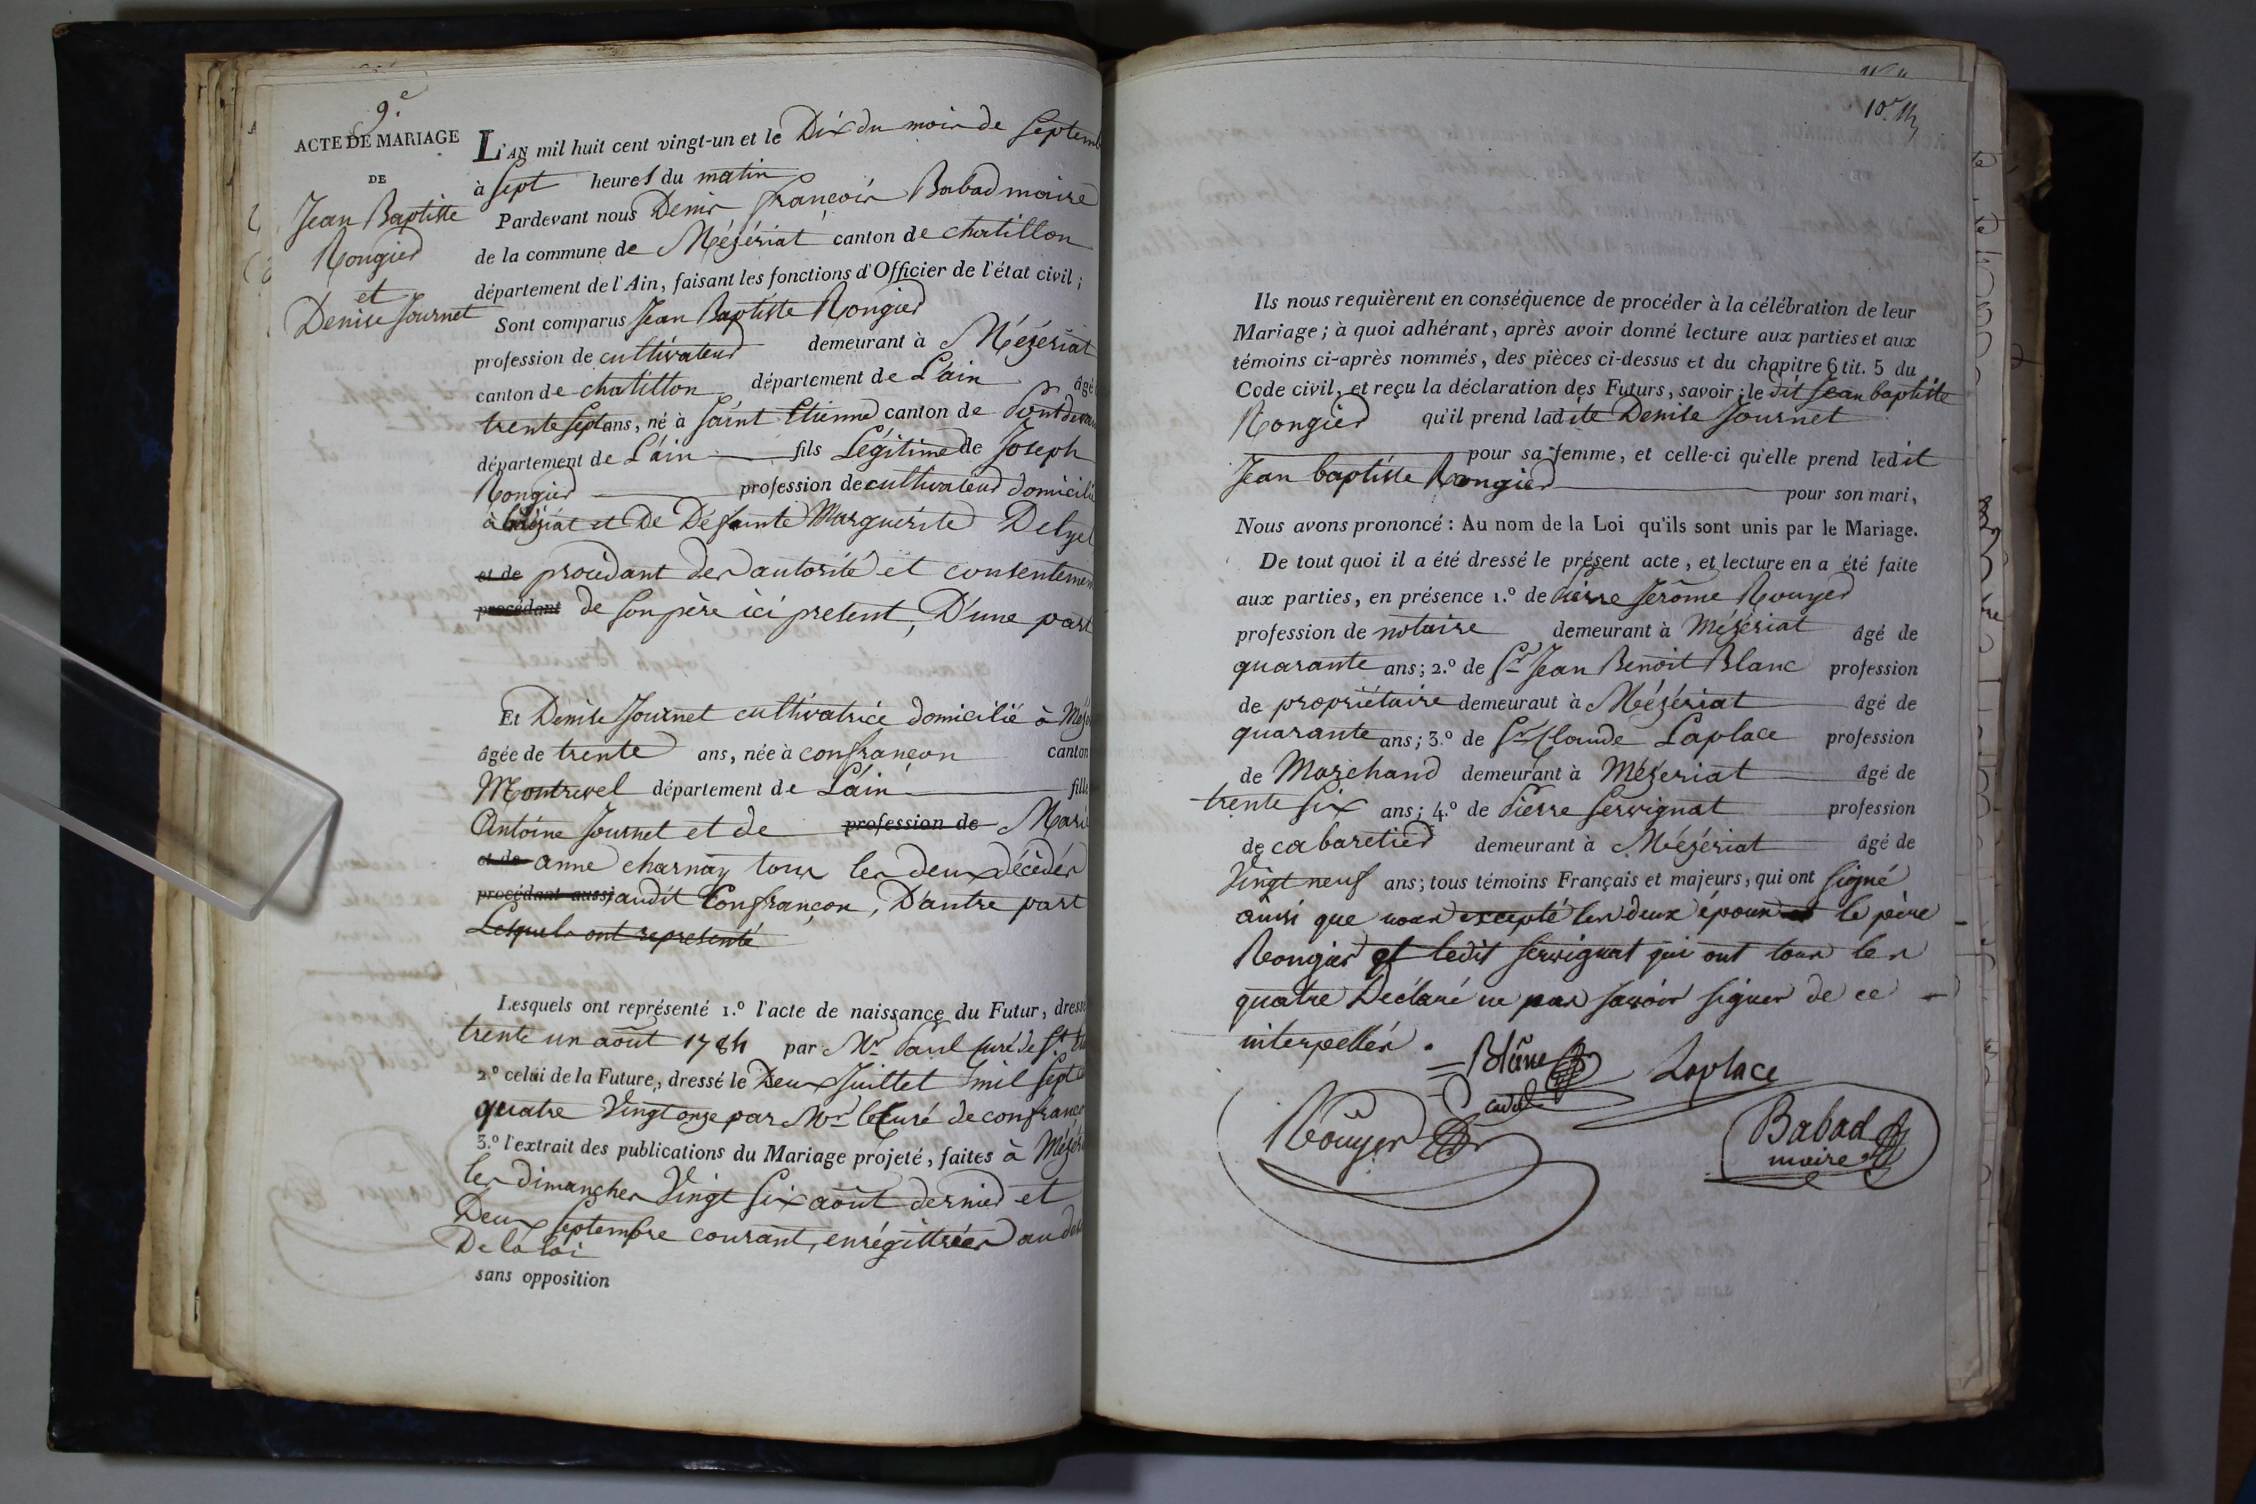 9.e
ACTE DE MARIAGE
DE
Jean Baptiste
Rongier
et
Denise Journet
L'AN mil huit cent vingt-un et le Dix du mois de Septemb
à Sept heures du matin
Pardevant nous Denis françois Babad maire
de la commune de Mézériat canton de chatillon
département de l'Ain, faisant les fonctions d'Officier de l'état civil ;
Sont comparus Jean Baptiste Rongier
profession de cultivateur demeurant à Mézériat
canton de chatillon département de L'ain âgé
trente sept ans, né à Saint Etienne canton de Pontdevau
département de L'ain fils Légitime de Joseph
Rongier profession de cultivateur domicilié
à et De Défunte Marguérite
et de procédant des autorité et consentemen
procédant de son père ici present, D'une part
Et Denise Journet cultivatrice domicilié à Mézé
âgée de trente ans, née à confrançon canton
Montrevel département de L'ain fille
Antoine Journet et de profession de Marie
et de anne charnay tous les deux décédés
procédant aussi audit Confrançon, D'autre part
Lesquels ont representé
Lesquels ont représenté 1.º l'acte de naissance du Futur, dressé
trente un août 1784 par Mr Paul Curé de St
2º celui de la Future, dressé le Deux Juillet mil sept
quatre Vingt onze par Mr le Curé de confranço
3.º l'extrait des publications du Mariage projeté, faites à Mézér
les dimanches Vingt Six août dernier et
Deux Septembre courant, enrégittrées au
De la loi
sans opposition
10.
Ils nous requièrent en conséquence de procéder à la célébration de leur
Mariage ; à quoi adhérant, après avoir donné lecture aux parties et aux
témoins ci-après nommés, des pièces ci-dessus et du chapitre 6 tit. 5 du
Code civil, et reçu la déclaration des Futurs, savoir ; le dit Jean baptiste
Rongier qu'il prend ladite Denise Journet
pour sa femme, et celle-ci qu'elle prend ledit
Jean baptiste Rongier pour son mari,
Nous avons prononcé : Au nom de la Loi qu'ils sont unis par le Mariage.
De tout quoi il a été dressé le présent acte, et lecture en a été faite
aux parties, en présence 1.º de Pierre Jerôme Rouyer
profession de notaire demeurant à Mézériat âgé de
quarante ans ; 2.º de Sr Jean Benoit Blanc profession
de propriétaire demeuraut à Mézériat âgé de
quarante ans ; 3.º de Sr Claude Laplace profession
de Marchand demeurant à Mézeriat âgé de
trente Six ans ; 4.º de Pierre Servignat profession
de cabaretier demeurant à Mézériat âgé de
Vingt neuf ans ; tous témoins Français et majeurs, qui ont signé
ainsi que nous excepté les deux époux le père
Rongier et ledit Servignat qui ont tous les
quatre Déclaré ne pas savoir signer de ce
interpellés.
Blanc
Cadet
Laplace
Rouyer
Babad
maire